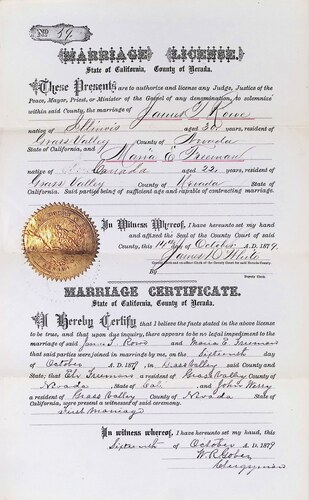 No. 59.
MARRIAGE LICENSE.
State of California, County of Nevada.
These Presents are to authorize and license any Judge, Justice of the
Peace, Mayor, Priest, or Minister of the Gospel of any denomination, to solemnize
within said county, the marriage of James T Rowe
native of Illinois aged 30 years, resident of
Grass Valley County of Nevada
State of California, and Maria E Freeman
native of Canada aged 22 years, resident of
Grass Valley County of Nevada State of
California. Said parties being of sufficient age and capable of contracting marriage.
In Witness Whereof, I have hereunto set my hand
and affixed the Seal of the County Court of said
County, this 14th day of October A.D. 1879.
James D White
County Clerk and ex-officio Clerk of the County Court for said Nevada County.
By
Deputy Clerk.
MARRIAGE CERTIFICATE.
State of California, County of Nevada.
I Hereby Certify that I believe the facts stated in the above license
to be true, and that upon due inquiry, there appears to be no legal impediment to the
marriage of said James T Rowe and Maria E. Freeman
that said parties were joined in marriage by me, on the Sixteenth day
of October A.D. 1879, in Grass Valley said County and
State; that Eli Freeman a resident of Grass Valley County of
Nevada State of Cala and John Werry
a resident of Grass Valley County of Nevada State of
California, were present a witnesses of said ceremony.
First Marriage
In witness whereof, I have hereunto set my hand, this
Sixteenth of October A.D. 1879
W. R. Gober
Clergyman